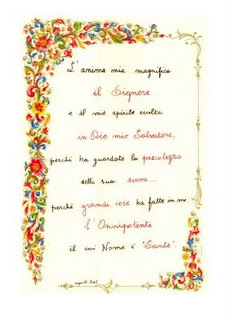 L'anima mia magnifica
il Signore
e il mio spirito esulta
in Dio mio Salvatore,
perché ha guardato la piccolezza
della sua serva..
perché grandi cose ha fatto in me
l'Onnipotente
il cui Nome è "Santo".